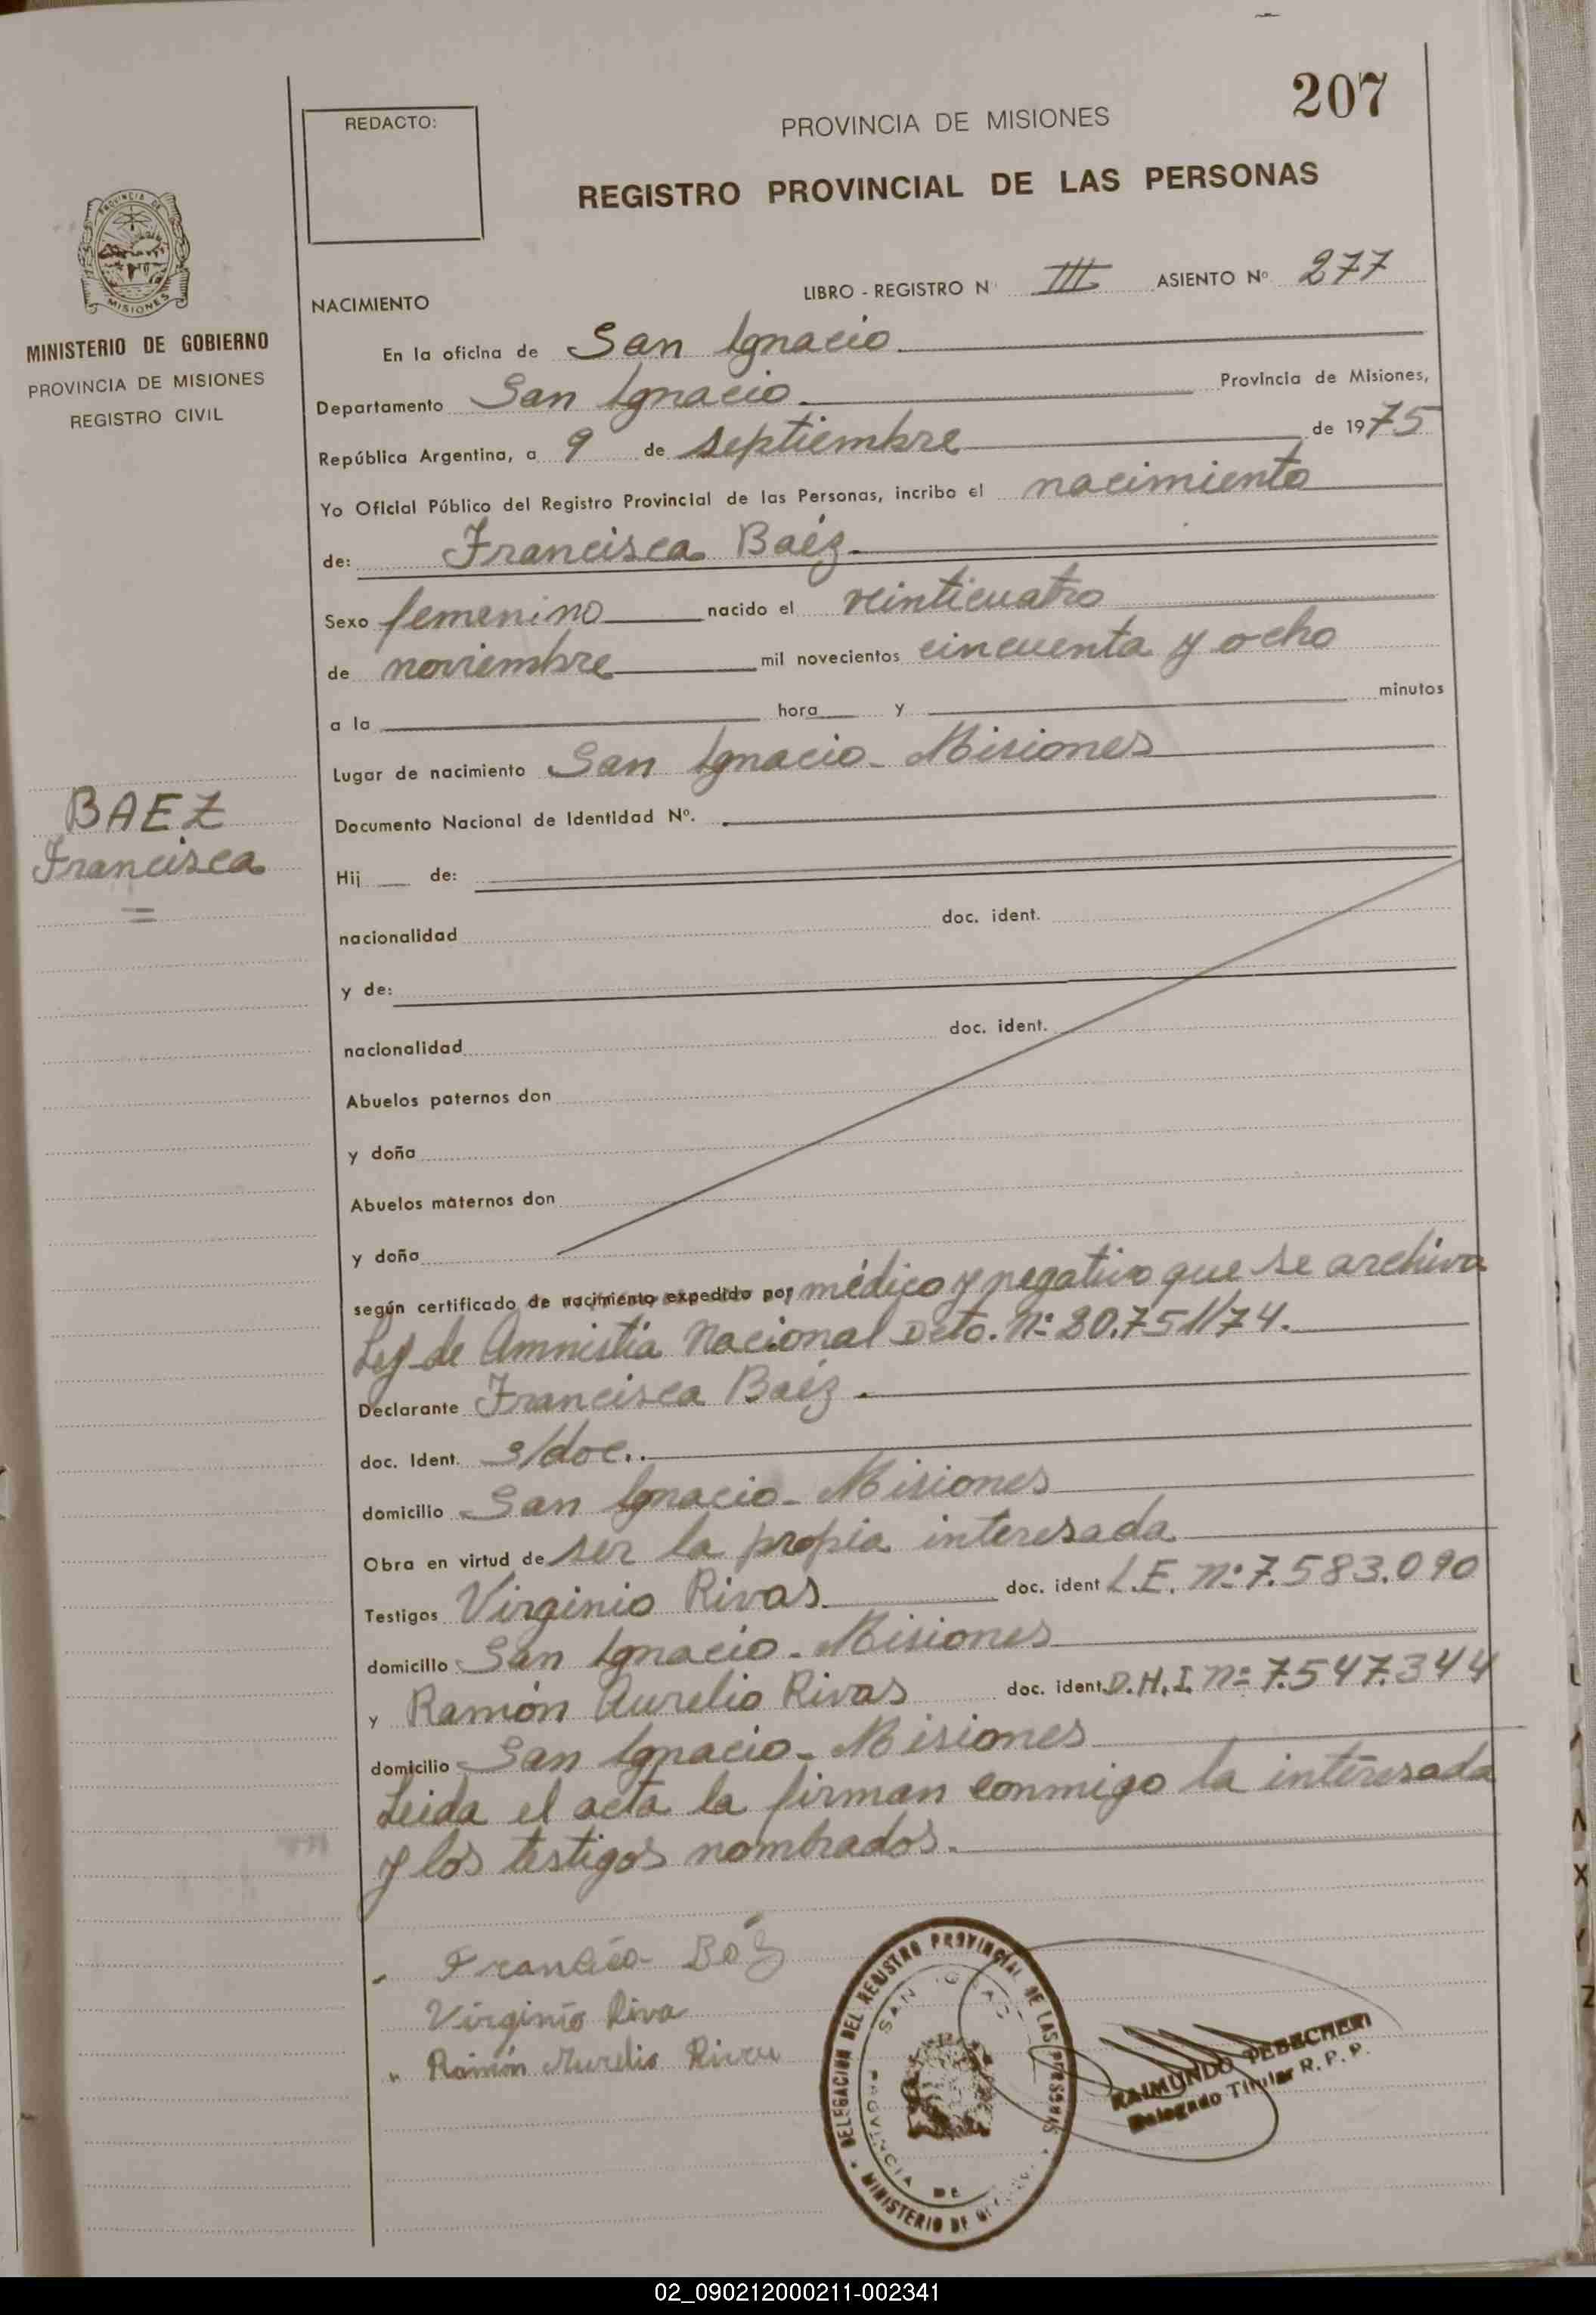 207
REDACTO:
PROVINCIA DE MISIONES
REGISTRO PROVINCIAL DE LAS PERSONAS
PROVINCIA DE
MISIONES
MINISTERIO DE GOBIERNO
PROVINCIA DE MISIONES
REGISTRO CIVIL
NACIMIENTO
LIBRO - REGISTRO N° III ASIENTO Nº 277
En la oficina de San Ignacio
Departamento San Ignacio. Provincia de Misiones,
República Argentina, a 9 de septiembre de 1975
Yo Oficial Público del Registro Provincial de las Personas, incribo el nacimiento
de: Francisca Baéz.
Sexo femenino nacido el veinticuatro
de noviembre mil novecientos cincuenta y ocho
a la hora y minutos
Lugar de nacimiento San Ignacio - Misiones
BAEZ
Francisca
Documento Nacional de Identidad Nº.
Hij de:
nacionalidad doc. ident.
y de:
nacionalidad doc. ident.
Abuelos paternos don
y doña
Abuelos maternos don
y doña
según certificado de nacimiento expedido por médico y negativo que se archiva
Ley de Amnistia Nacional Dcto. Nº 20.751/74.
Declarante Francisca Baéz.
doc. Ident. s/doc..
domicilio San Ignacio - Misiones
Obra en virtud de ser la propia interesada
Testigos Virginio Rivas doc. ident L.E. Nº 7.583.090
domicilio San Ignacio - Misiones
y Ramón Aurelio Rivas doc. ident D.N.I. Nº 7.547.344
domicilio San Ignacio - Misiones
Leida el acta la firman conmigo la interesada
y los testigos nombrados.
Virginio Riva
Ramón Aurelio
DELEGACION DEL REGISTRO PROVINCIAL DE LAS PERSONAS
SAN
PROVINCIA DE
MINISTERIO DE
RAIMUNDO
Delegado Titular R. P. P.
02_090212000211-002341